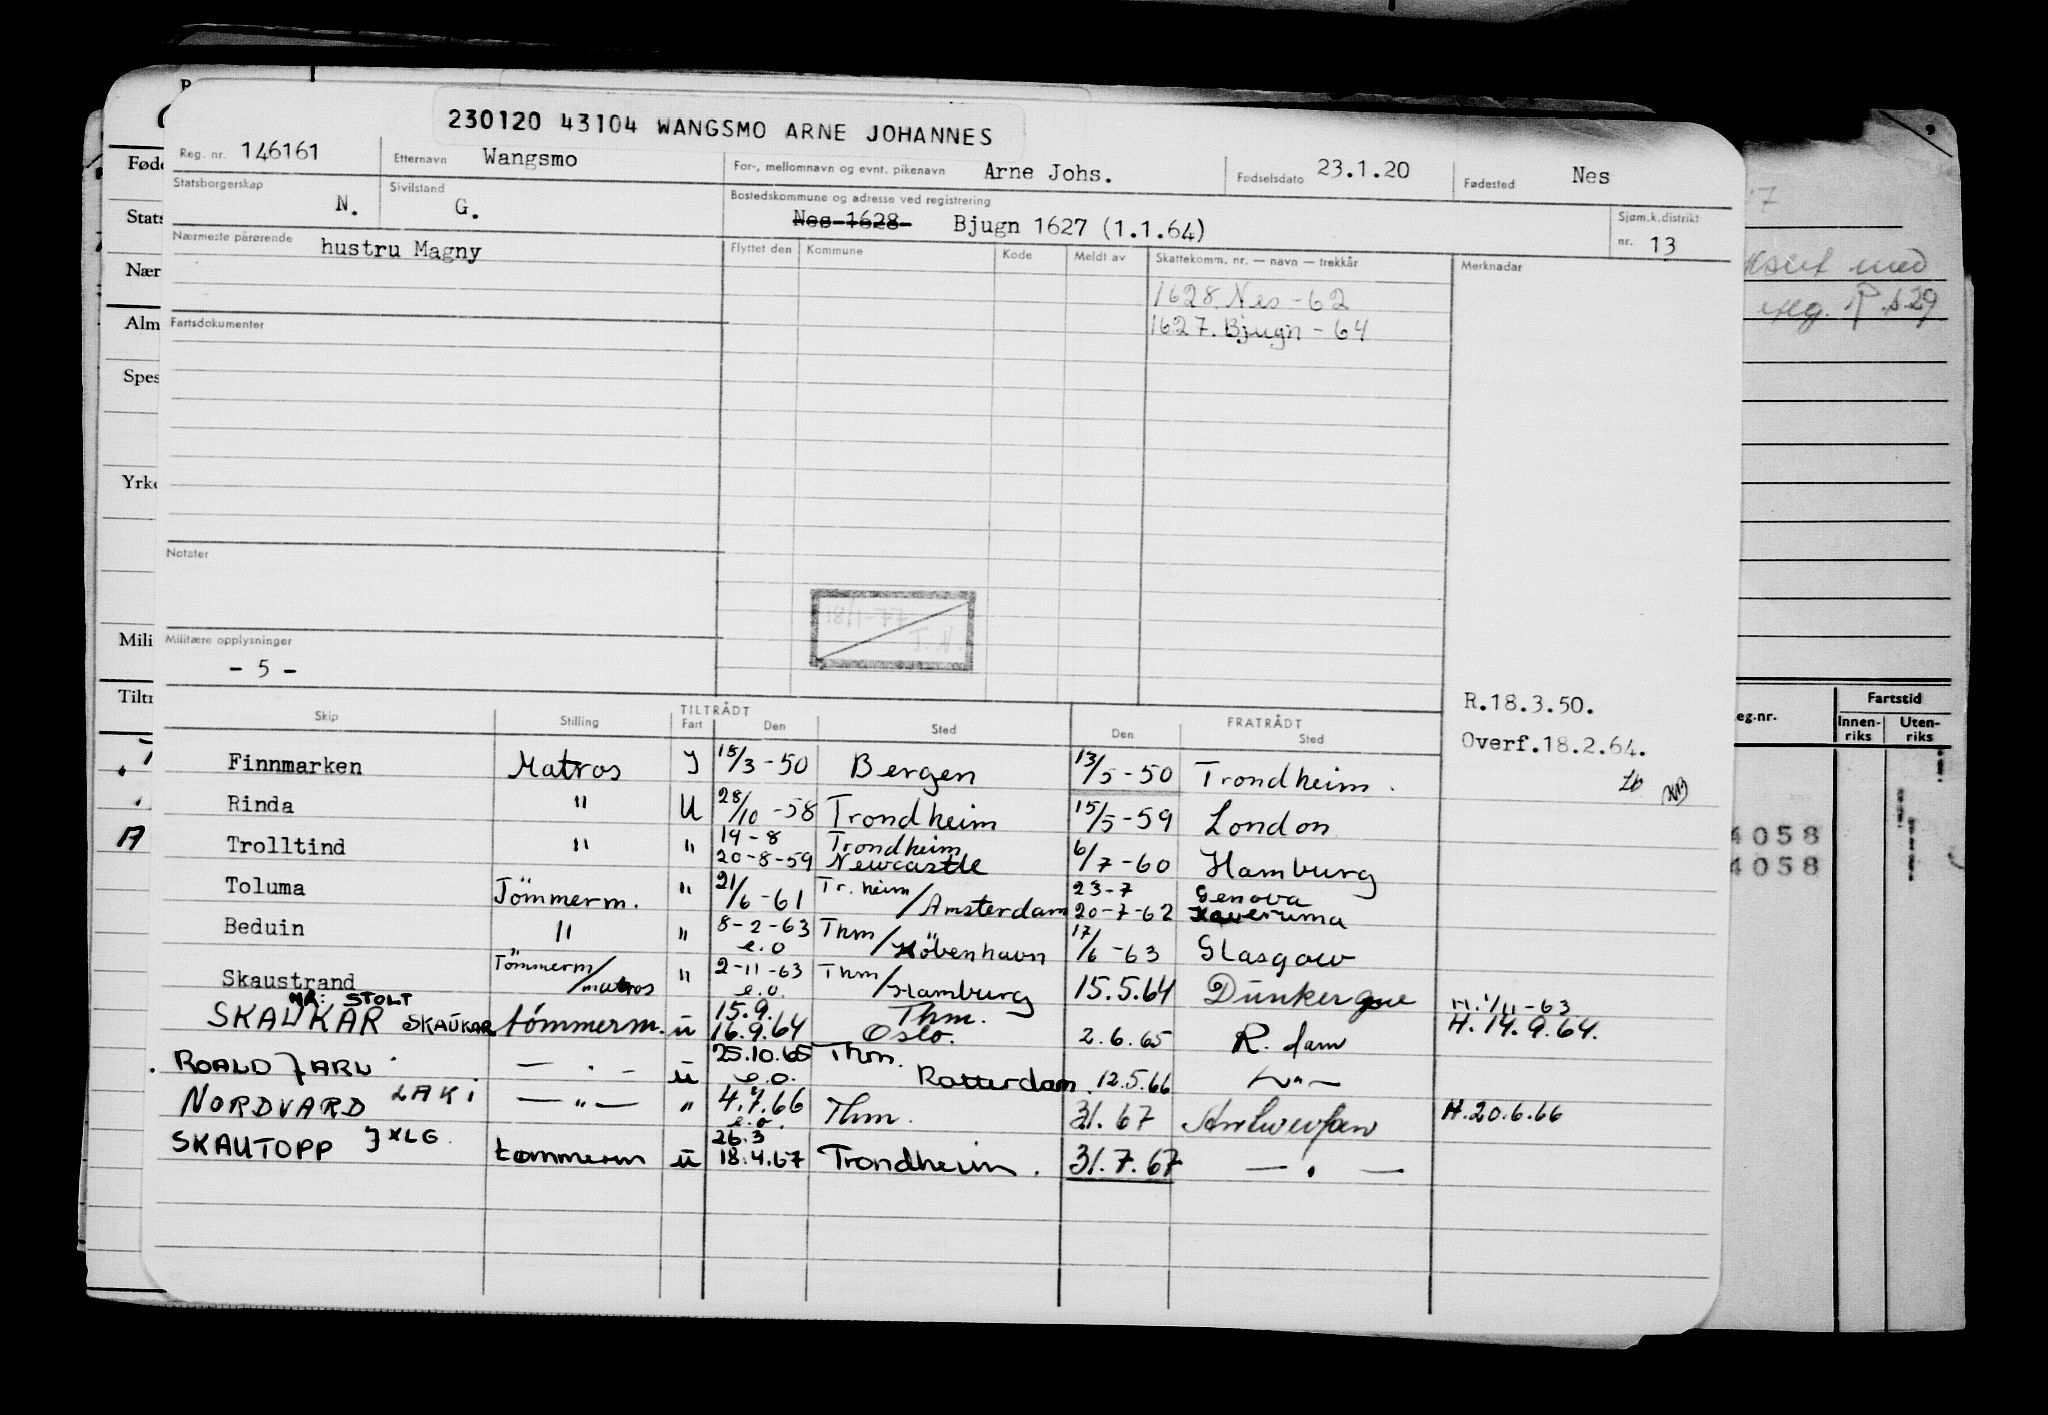 230120 43104 WANGSMO ARNE JOHANNES
Reg. nr. 146161 Etternavn Wangsmo For-, mellomnavn og evnt. pikenavn Arne Johs. Fødselsdato 23.1.20 Fødested Nes
Statsborgerskap N. Sivilstand G. Bostedskommune og adresse ved registrering Nes 1628 Bjugn 1627 (1.1.64) Sjøm.k.distrikt nr. 13
Nærmeste pårørende hustru Magny Flyttet den Kommune Kode Meldt av Skattekomm. nr. — navn — trekkår Merknader
1628 Nes - 62
1627. Bjugn - 64
Fartsdokumenter
Notater
Militære opplysninger
- 5 -
R.18.3.50.
Overf.18.2.64.
TILTRÅDT FRATRÅDT
Skip Stilling Fart Den Sted Den Sted
Finnmarken Matros J 15/3 - 50 Bergen 13/5 - 50 Trondheim.
Rinda " U 28/10 - 58 Trondheim 15/5 - 59 London
Trolltind " " 19-8 Trondheim 20-8-59 Newcastle 6/7 - 60 Hamburg
Toluma Tömmerm. " 21/6 - 61 Tr.heim/Amsterdam 23-7 Genova 20-7-62
Beduin " " 8-2-63 e.o Thm/København 17/6 - 63 Glasgow
Skaustrand Tömmerm/matros " 2-11-63 e.o. Thm/Hamburg 15.5.64 Dunkerque H.1/11-63
NÅ: STOLT
SKAUKAR SKAUKAR tömmerm. u 15.9. Thm. 16.9.64 Oslo. 2.6.65 R.dam H.14.9.64.
ROALD JARL — . — u 25.10.65 e.o. Thm. Rotterdam 12.5.66 — " —
NORDVARD LAKI — " — " 4.7.66 e.o. Thm. 31. 67 Antwerpen H.20.6.66
SKAUTOPP JXLG tømmerm u 26.3 18.4.67 Trondheim. 31.7.67 — . —
Fød
Stats
Nær
Alm
Spes
Yrke
Mili
Tiltr
A
med
eg.nr. Fartstid
Innen-riks Uten-riks
4058
4058